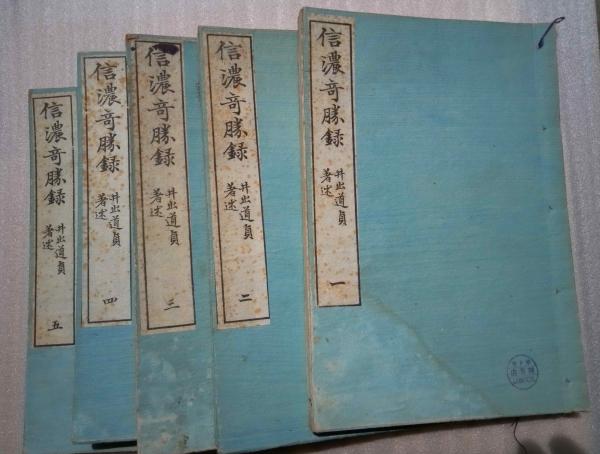 信濃奇勝録
井出道貞
著述
一
信濃奇勝録
井出道貞
著述
二
信濃奇勝録
井出道貞
著述
三
信濃奇勝録
井出道貞
著述
四
信濃奇勝録
井出道貞
著述
五